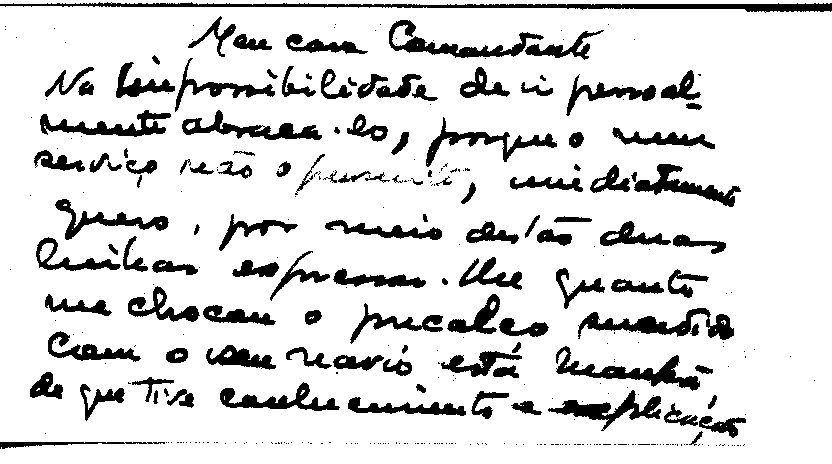 Meu caro Comandante
Na impossibilidade de ir pessoal-
mente abraça-lo, porque o meu
serviço não o permite, imediatamente
quero, por meio destas duas
linhas expressar-lhe quanto
me chocou o percalço sucedido
com o seu navio esta manhã,
de que tive conhecimento e explicação